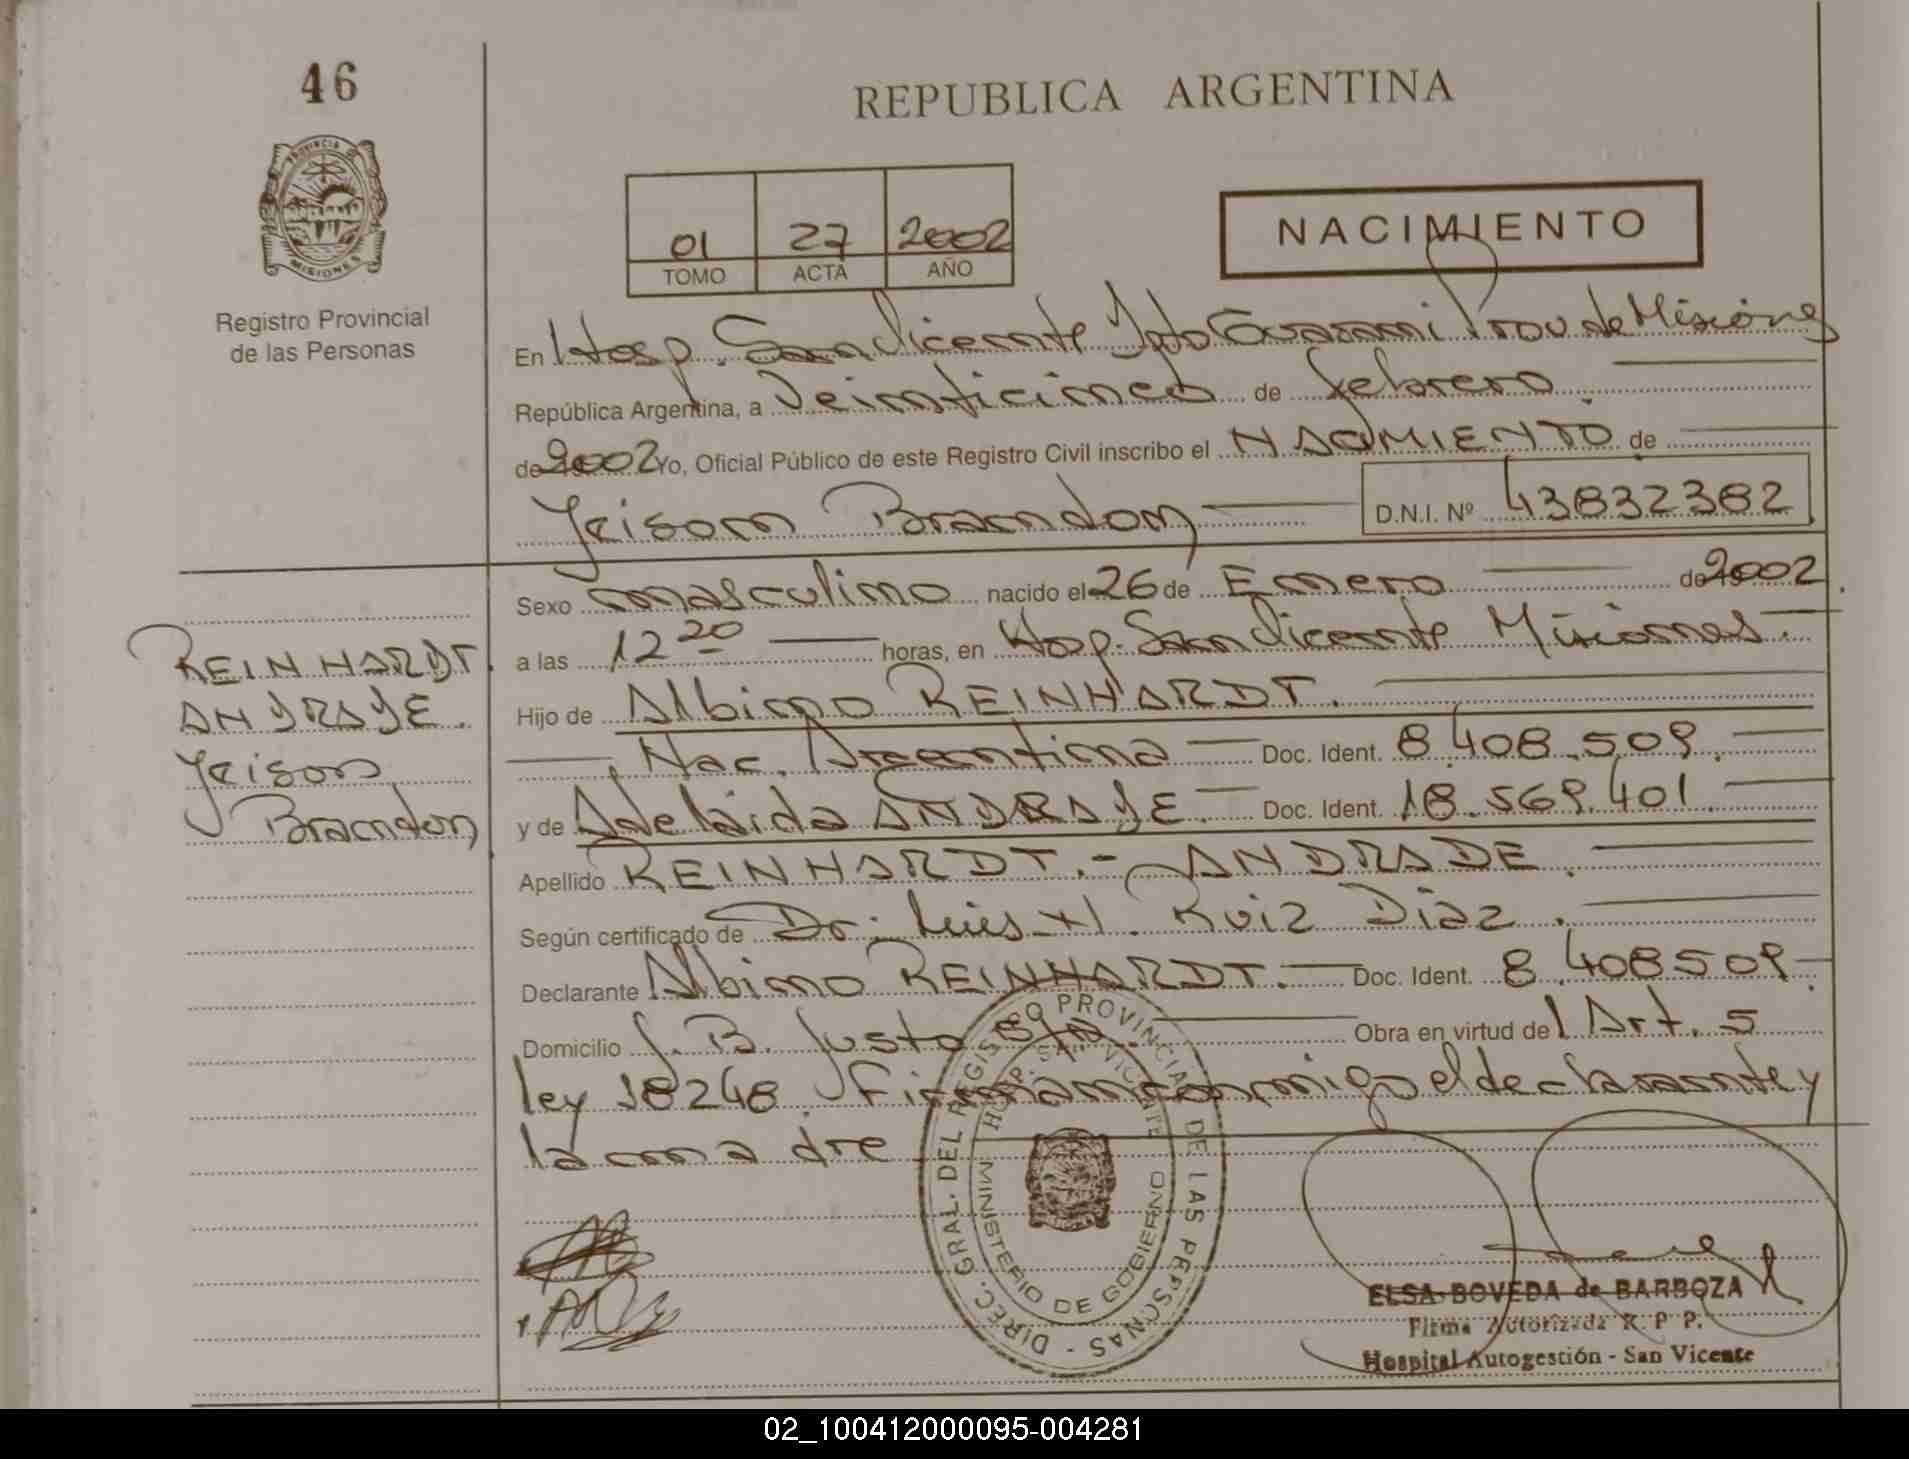 46
REPUBLICA ARGENTINA
PROVINCIA DE
MISIONES
Registro Provincial
de las Personas
01 27 2002
TOMO ACTA AÑO
NACIMIENTO
En Hosp. San Vicente Dpto Guarani Prov de Misiones
República Argentina, a Veinticinco de febrero
de 2002 Yo, Oficial Público de este Registro Civil inscribo el NACIMIENTO de
Jeison Brandon D.N.I. Nº 43832382
Sexo masculino nacido el 26 de Enero de 2002
a las 12 20 horas, en Hosp. San Vicente Misiones.
Hijo de Albino REINHARDT.
Nac. Argentina Doc. Ident. 8.408.509.
y de Adelaida ANDRADE. Doc. Ident. 18.569.401.
Apellido REINHARDT. - ANDRADE.
Según certificado de Dr. Luis H. Ruiz Diaz.
Declarante Albino REINHARDT. Doc. Ident. 8.408509.
Domicilio J. B. Justo S/N. Obra en virtud del Art. 5
ley 18248. Firman conmigo el declarante y
la madre
REINHARDT.
ANDRADE.
Jeison
Brandon
DIREC. GRAL. DEL REGISTRO PROVINCIAL DE LAS PERSONAS -
HOSP. SAN VICENTE
MINISTERIO DE GOBIERNO
ELSA BOVEDA de BARBOZA
Firma Autorizada R. P. P.
Hospital Autogestión - San Vicente
02_100412000095-004281